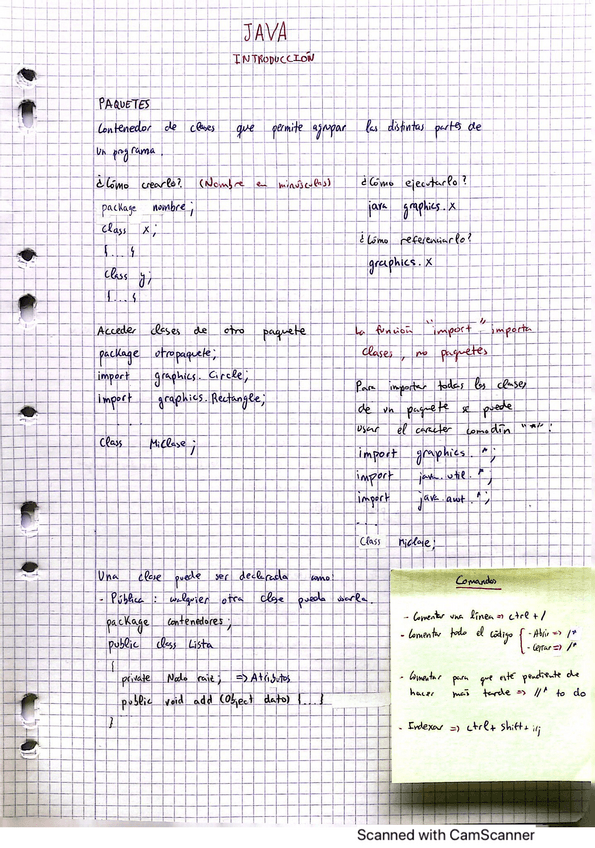 JAVA
INTRODUCCIÓN
PAQUETES
Contenedor de clases que permite agrupar las distintas partes de
un programa.
¿Cómo crearlo? (Nombre en minúsculas)
package nombre;
class x;
{...}
class y;
{...}
¿Cómo ejecutarlo?
java graphics.x
¿Cómo referenciarlo?
graphics.x
Acceder clases de otro paquete
package otropaquete;
import graphics.Circle;
import graphics.Rectangle;
...
Class MiClase;
La función "import" importa
clases, no paquetes
Para importar todas las clases
de un paquete se puede
usar el caracter comodín "*":
import graphics.*;
import java.util.*;
import java.awt.*;
...
Class miclase;
Una clase puede ser declarada como:
- Pública: cualquier otra clase pueda usarla.
package contenedores;
public class Lista
{
private Nodo raiz; => Atributos
public void add (Object dato) {...}
}
Comandos
- Comentar una línea => ctrl + /
- Comentar todo el código { - Abrir => /*
- Cerrar => /*
- Comentar para que esté pendiente de
hacer más tarde => //* to do
- Indexar => ctrl + shift +